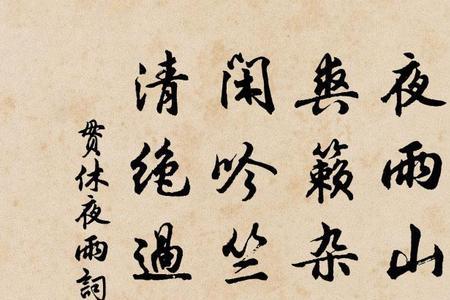 夜雨山
爽籁杂
闲吟竺
清绝過
貫休夜雨詞